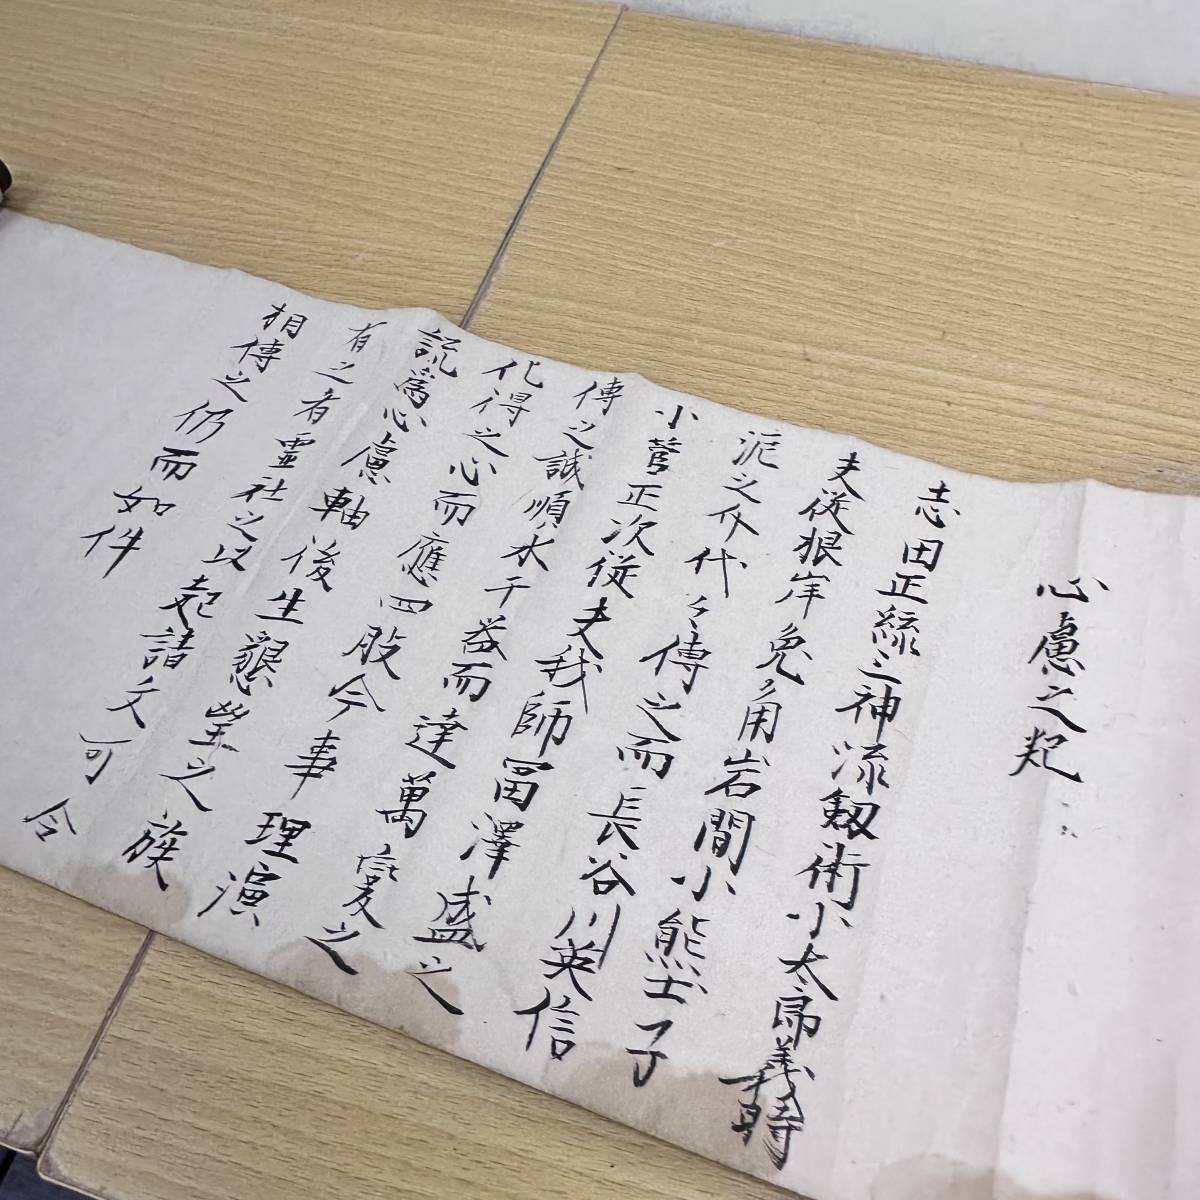 心慮之起
志田正縁三神流剱術小太郎義時
夫従根岸兔角岩間小熊士子
泥之介代々傳之而長谷川英信
小菅正次従夫我師冨澤盛之
傳之誠順水于器而達萬變之
化得之心而應四股今事理演
説爲心慮軸後生懇望之族
有之者靈社之以起請文可令
相傳之仍而如件